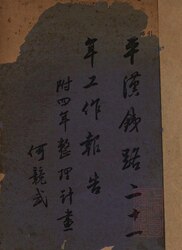 平漢鉄路二十一
年工作報告
附四年整理計畫
何競武